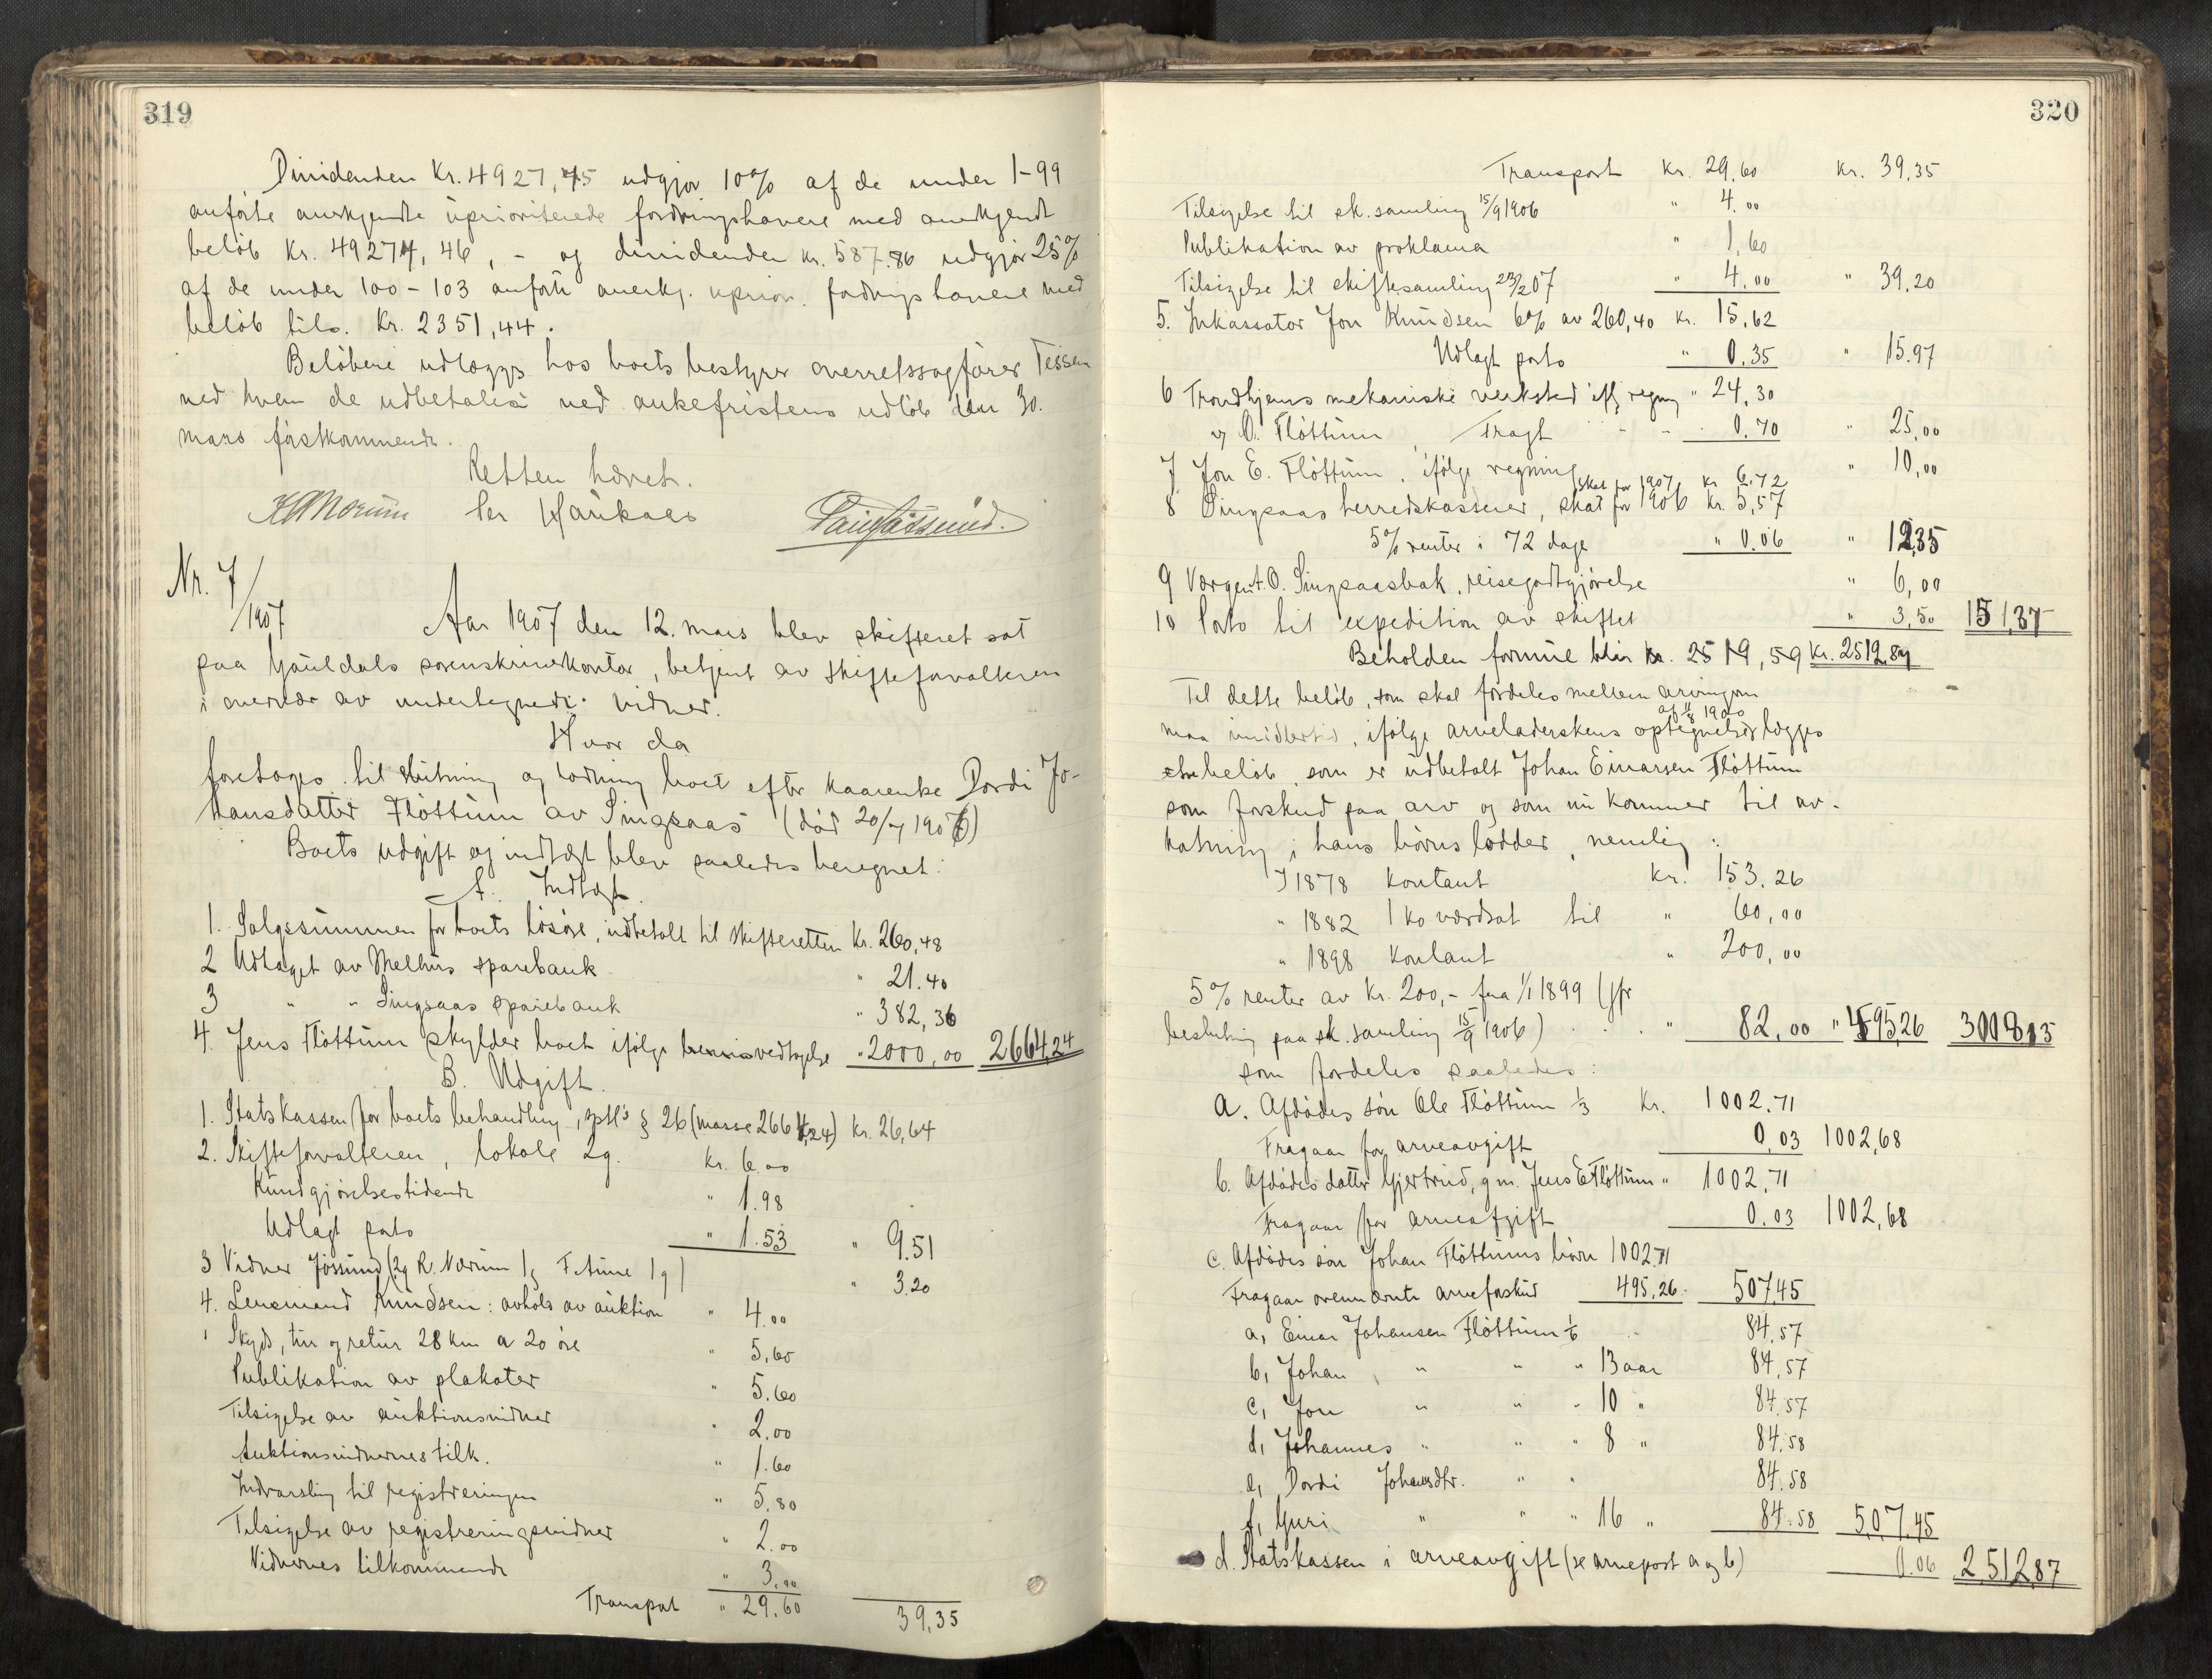 319
Dividenden Kr. 4927,45 udgjør 10% af de under 1-99
anførte anerkjendte uprioriterede fordringshavere med anerkjendt
beløb Kr. 49274,46, - og dividenden kr. 587.86 udgjør 25%
af de under 100-103 anførte anerkj. uprior. fordringshavere med
beløb tils. Kr. 2351,44.
Beløbene udlægges hos boets bestyrer overretssagfører Tessem
ved hvem de udbetales ved ankefristens udløb den 30.
mars førstkommende.
Retten hævet.
Nr. 7/1907
Aar 1907 den 12. mars blev skifteret sat
paa Gauldals sorenskriverkontor, betjent av skifteforvalteren
i overvær av undertegnede vidner.
Hvor da
foretoges til slutning og lodning boet efter kaarenke Dordi Jo-
hansdatter Fløttum av Singsaas (død 20/7 1906)
Boets udgift og indtægt blev saaledes beregnet:
A. Indtægt.
1. Salgssummen for boets løsøre, indbetalt til skifteretten Kr. 260,48
2 Udtaget av Melhus sparebank " 21.40
3 " " Singsaas sparebank " 382,36
4. Jens Fløttum skylder boet ifølge vedtagelse " 2000,00 2664,24
B. Udgift.
1. Statskassen for boets behandling, sptl's § 26 (masse 2664,24) Kr. 26,64
2. Skifteforvalteren, lokale 2g. Kr. 6.00
Kundgjørelsestidende " 1.98
Udlagt porto " 1.53 " 9.51
3 Vidner Jøssund (2g R. Nørum 1g F. Aune 1g) " 3.20
4. Lensmand Knudsen: avhold av auktion " 4.00
Skyds, tur og retur 28 km a 20 øre " 5,60
Publikation av plakater " 5.60
Tilsigelse av auktionsvidner " 2.00
Auktionsvidnernes tilk. " 1.60
Indvarsling til registreringen " 5,80
Tilsigelse av registreringsvidner " 2.00
Vidnernes tilkommende " 3,00
Transport " 29.60 39,35
320
Transport Kr. 29,60 Kr. 39,35
Tilsigelse til sk.samling 15/9 1906 " 4.00
Publikation av proklama " 1,60
Tilsigelse til skiftesamling 23/2 07 " 4.00 " 39,20
5. Inkassator Jon Knudsen 6% av 260,40 Kr. 15,62
Udlagt porto " 0.35 " 15.97
6 Trondhjems mekaniske verksted ifl. regning " 24,30
og O. Fløttum, Fragt - - 0.70 " 25,00
7 Jon E. Fløttum, ifølge regning " 10,00
skat for 1907 kr 6.72
8 Singsaas herredskasserer, skat for 1906 Kr. 5,57
5% renter i 72 dage " 0.06 " 12,35
9 Værgen A. O. Singsaasbak, reisegodtgjørelse " 6,00
10 Porto til expedition av skiftet " 3,50 151,37
Beholden formue blir kr. 2519,59 Kr. 2512.87
Til dette beløb, som skal fordeles mellem arvingerne
af 11/8 1900
maa imidlertid, ifølge arveladerskens optegnelser lægges
beløb, som er udbetalt Johan Einarsen Fløttum
som forskud paa arv og som nu kommer til av-
kortning i hans børns lodder, nemlig:
I 1878 kontant Kr. 153.26
" 1882 1 ko værdsat til " 60,00
" 1898 kontant " 200,00
5% renter av Kr. 200,- fra 1/1 1899 (jfr
beslutning paa sk.samling 15/9 1906) . . . " 82,00 " 495,26 3008,13
som fordeles saaledes:
a. Afdødes søn Ole Fløttum 1/3 Kr. 1002.71
Fragaar for arveavgift 0,03 1002,68
b. Afdødes datter Gjertrud, g.m. Jens E Fløttum " 1002,71
Fragaar for arveafgift 0.03 1002,68
c. Afdødes søn Johan Fløttums børn 1002.71
Fragaar ovennævnte arveforskud 495,26 507,45
a, Einar Johansen Fløttum 1/6 84.57
b, Johan " " " 13 aar 84,57
c, Jon " " " 10 " 84.57
d, Johannes " " " 8 " 84.58
e, Dordi Johansdtr. " " 84.58
f, Guri " " " 16 " 84.58 507,45
d. Statskassen i arveavgift (se arvepost a og b) 0.06 2512,87